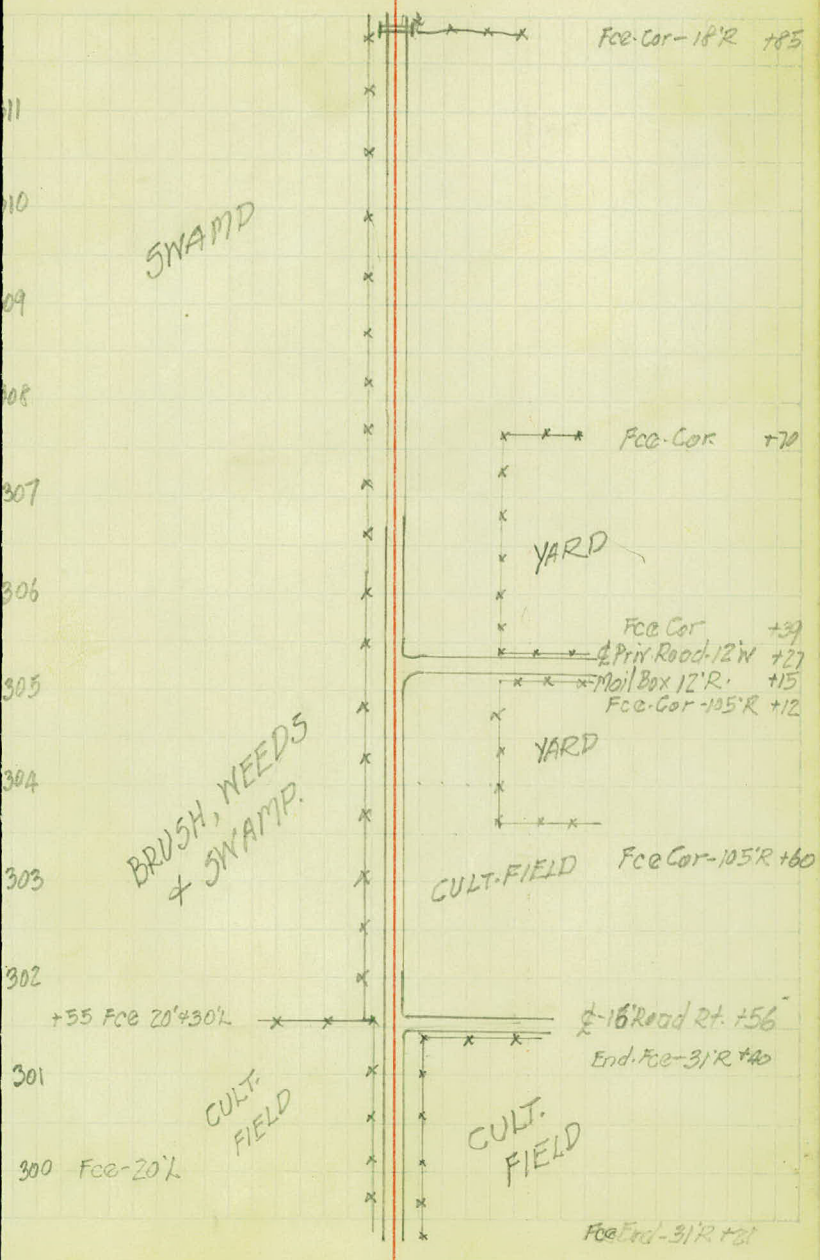 Fce-Cor-18'R +85
311
310
SWAMP
309
308
Fce-Cor +70
307
YARD
306
Fce Cor +39
℄ Priv. Road-12'W +27
305
Mail Box 12'R. +15
Fce-Cor-105'R +12
YARD
304
BRUSH, WEEDS
& SWAMP.
Fce Cor-105'R +60
303
CULT. FIELD
302
+55 Fce 20'&30'L
℄-16'Road Rt. +56
End. Fce-31'R +40
301
CULT.
FIELD
CULT.
FIELD
300 Fce-20'L
Fce End-31'R